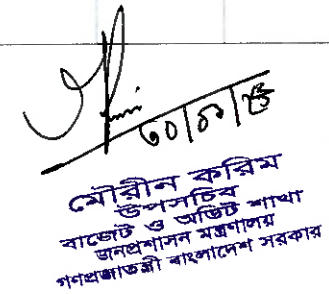 মৌরীন করিম
উপসচিব
বাজেট ও অডিট শাখা
জনপ্রশাসন মন্ত্রণালয়
গণপ্রজাতন্ত্রী বাংলাদেশ সরকার